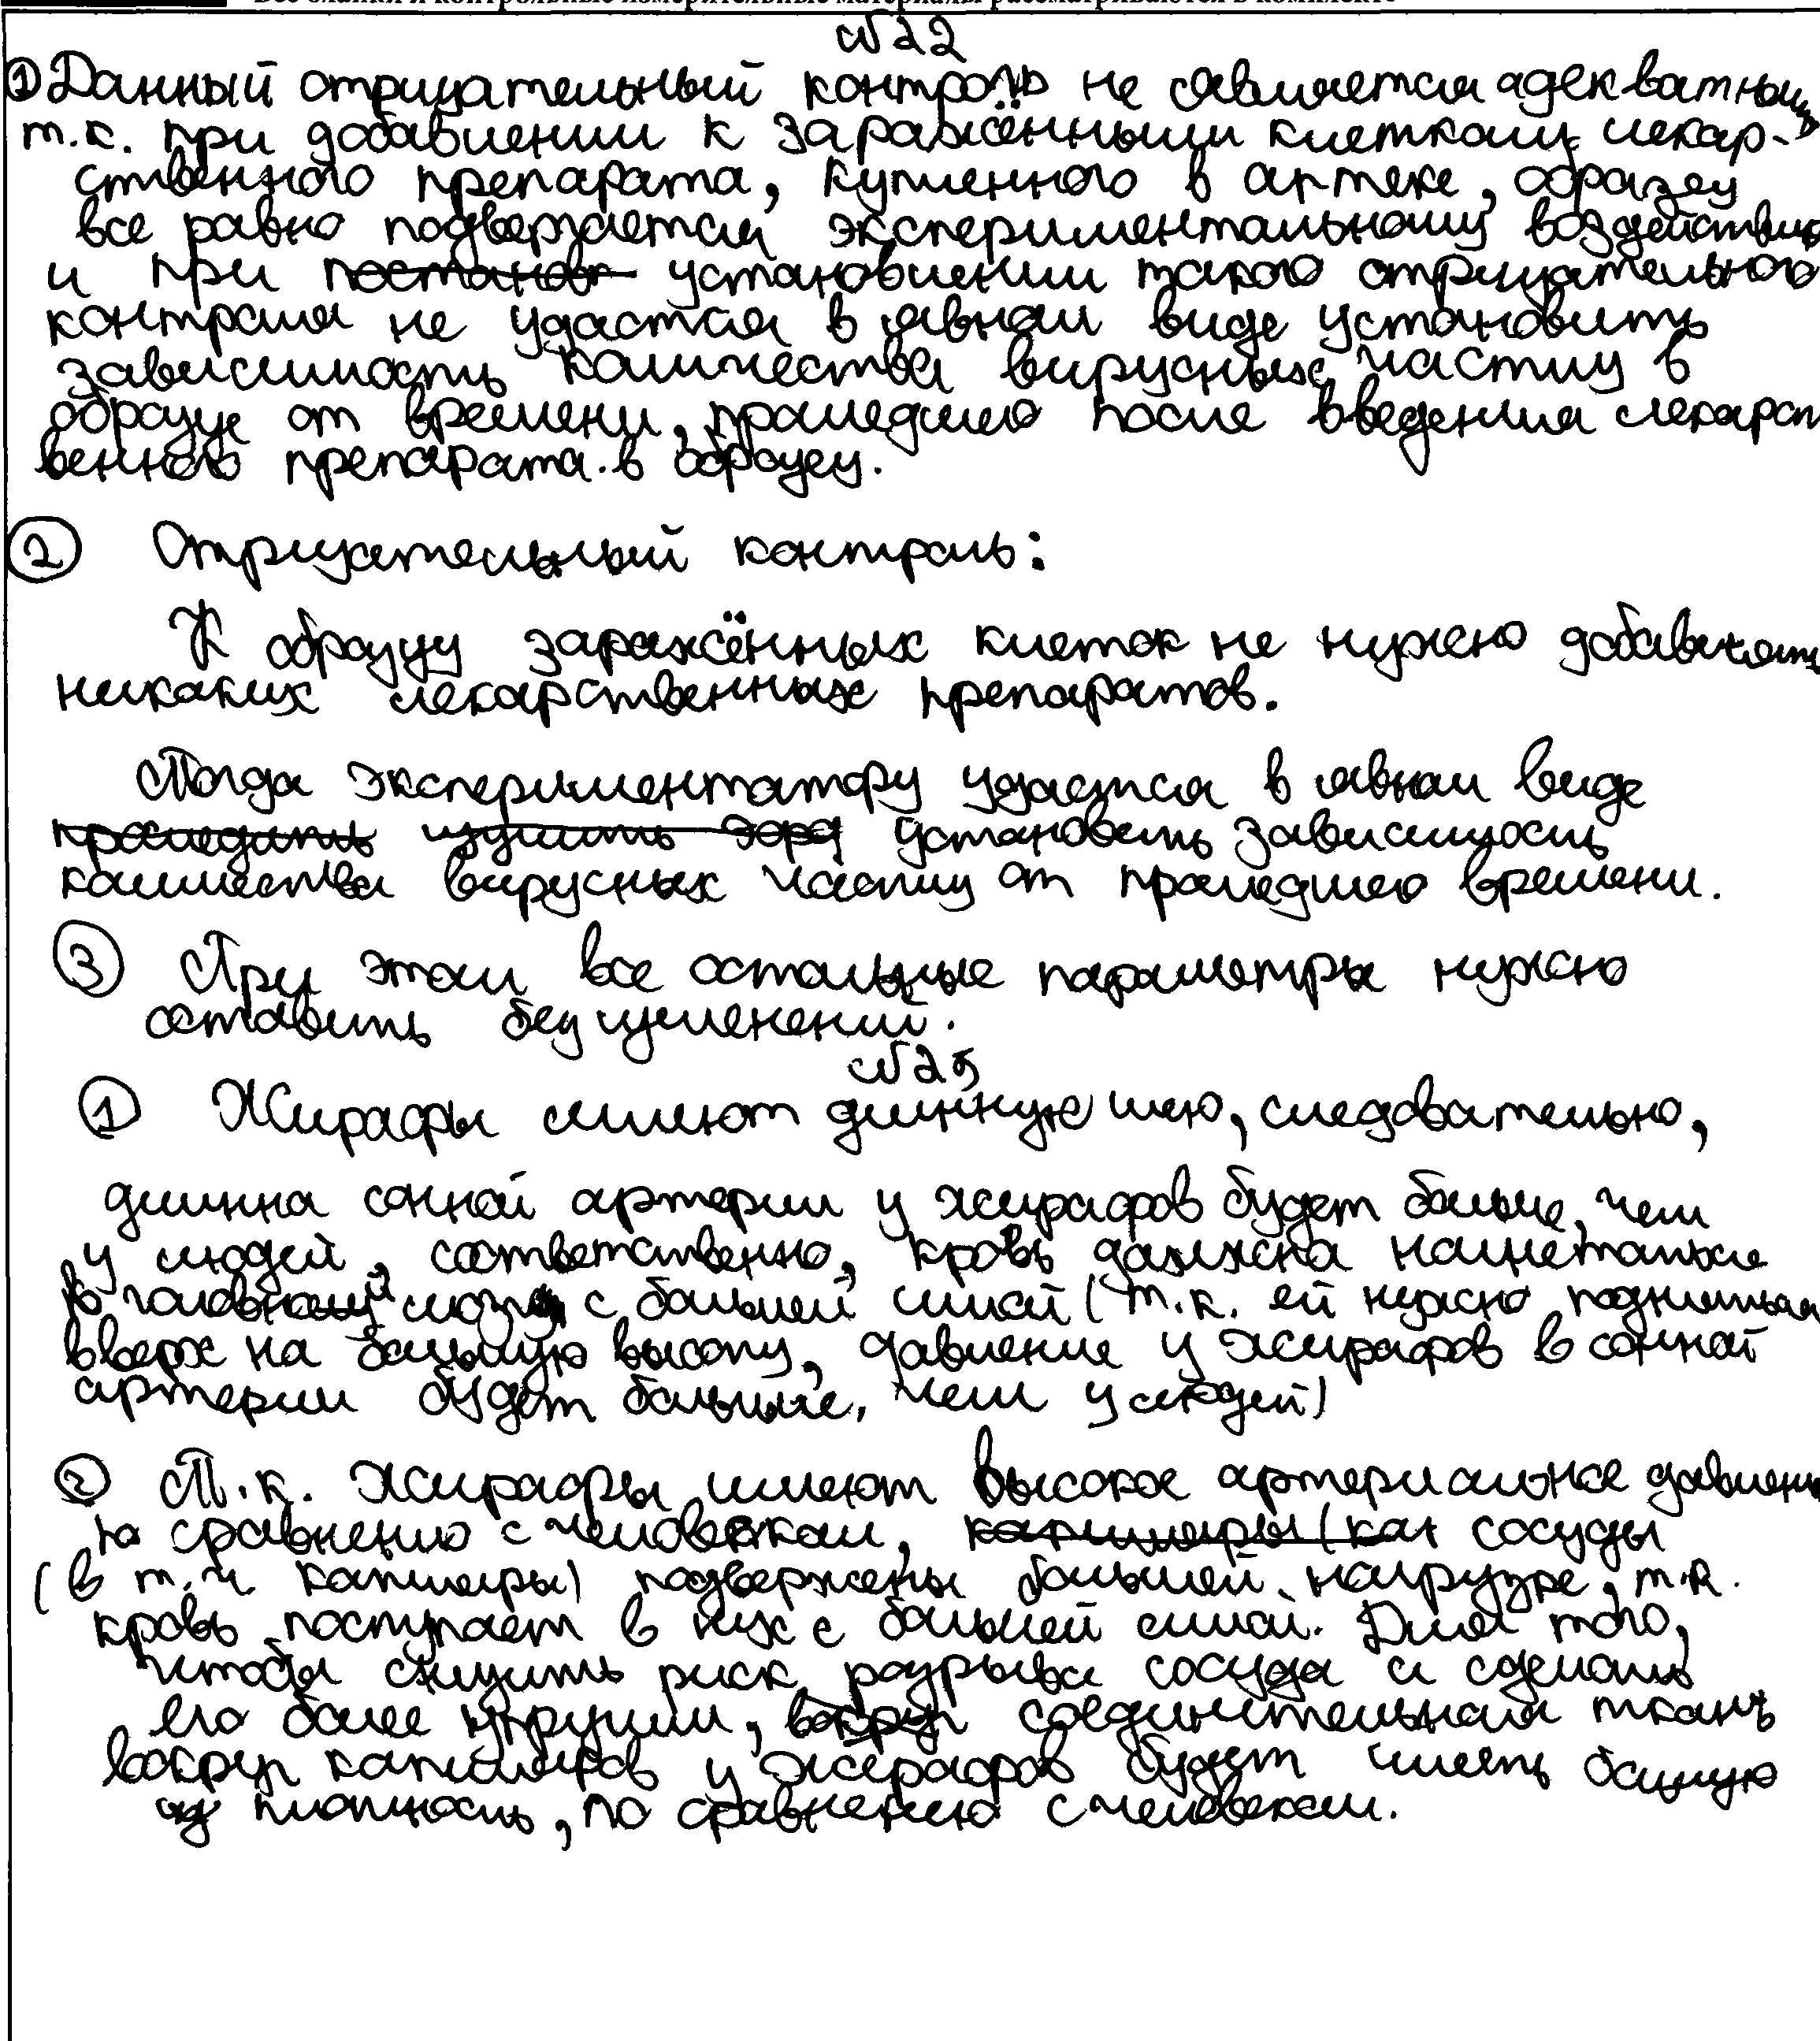 Все бланки и контрольные измерительные материалы рассматриваются в комплекте
№22
① Данный отрицательный контроль не является адекватным,
т.к. при добавлении к заражёнными клеткам лекар-
ственного препарата, купленного в аптеке, образец
все равно подвергается экспериментальному воздействию
и при постановк установлении такого отрицательного
контроля не удастся в явном виде установить
зависимость количества вирусных частиц в
образце от времени, прошедшего после введения лекарст
венного препарата в образец.
② Отрицательный контроль:
К образцу заражённых клеток не нужно добавлять
никаких лекарственных препаратов.
Тогда экспериментатору удастся в явном виде
проследить изучить установить зависимость
количества вирусных частиц от прошедшего времени.
③ При этом все остальные параметры нужно
оставить без изменений.
№25
① Жирафы имеют длинную шею, следовательно,
длинна сонной артерии у жирафов будет больше, чем
у людей, соответственно, кровь должна нагнетаться
в головной мозг с большей силой (т.к. ей нужно подниматься
вверх на большую высоту, давление у жирафов в сонной
артерии будет больше, чем у людей)
② Т.к. Жирафы имеют высокое артериальное давление
по сравнению с человеком, капилляры (как сосуды
(в т.ч капилляры) подвержены большей нагрузке, т.к.
кровь поступает в них с большей силой. Для того,
чтобы снизить риск разрыва сосуда и сделать
его более упругим, вокруг соединительная ткань
вокруг капилляров у жирафов будет иметь большую
плотность, по сравнению с человеком.